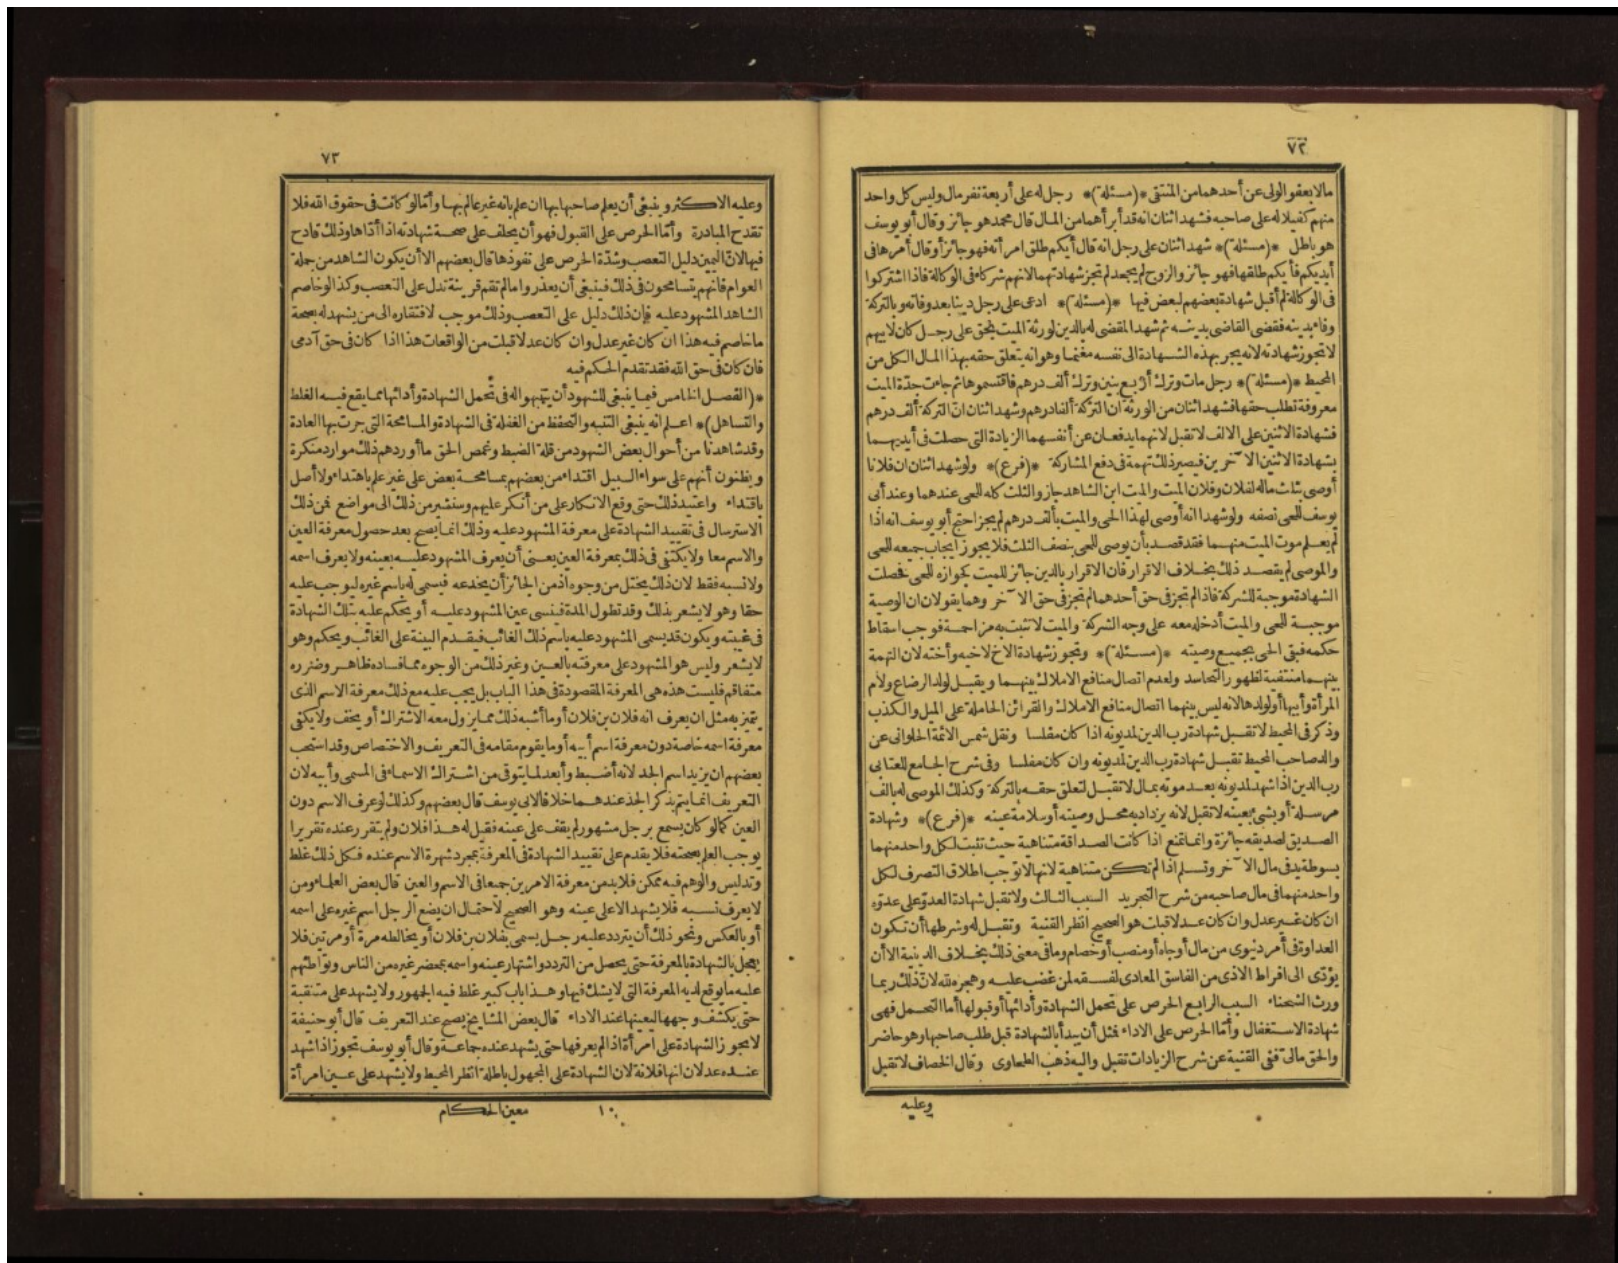 ٧٢
ما لا يعفو الولى عن أحدهما من المنتقى *(مسئلة)* رجل له على أربعة نفر مال وليس كل واحد
منهم كفيلا له على صاحبه فشهد اثنان انه قد أبرأهما من المال قال محمد هو جائز وقال أبو يوسف
هو باطل *(مسئلة)* شهد اثنان على رجل انه قال أيكم طلق امرأته فهو جائز أو قال أمرها فى
أيديكم فأيكم طلقها فهو جائز والزوج لم يجحد لم تجز شهادتهما لانهم شركاء فى الوكالة فاذا اشتركوا
فى الوكالة لم أقبل شهادة بعضهم لبعض فيها *(مسئلة)* ادعى على رجل دينا بعد وفاته وبالتركة
وفاء بدينه فقضى القاضى بدينه ثم شهد المقضى له بالدين لورثة الميت بحق على رجل كان لابيهم
لا تجوز شهادته لانه يجر بهذه الشهادة الى نفسه مغنما وهو انه يتعلق حقه بهذا المال الكل من
المحيط *(مسئلة)* رجل مات وترك أربع بنين وترك ألف درهم فاقتسموها ثم جاءت جدة الميت
معروفة تطلب حقها فشهد اثنان من الورثة ان التركة ألفا درهم وشهد اثنان ان التركة ألف درهم
فشهادة الاثنين على الالف لا تقبل لانهما يدفعان عن أنفسهما الزيادة التى حصلت فى أيديهما
بشهادة الاثنين الآخرين فيصير ذلك تهمة فى دفع المشاركة *(فرع)* ولو شهد اثنان ان فلانا
أوصى بثلث ماله لفلان وفلان الميت والميت ابن الشاهد جاز والثلث كله للحى عندهما وعند أبى
يوسف للحى نصفه ولو شهدا انه أوصى لهذا الحى والميت بألف درهم لم يجز احتج أبو يوسف انه اذا
لم يعلم موت الميت منهما فقد قصد بأن يوصى للحى بنصف الثلث فلا يجوز ايجاب جميعه للحى
والموصى لم يقصد ذلك بخلاف الاقرار فان الاقرار بالدين جائز للميت كجوازه للحى فحصلت
الشهادة موجبة للشركة فاذا لم تجز فى حق أحدهما لم تجز فى حق الآخر وهما يقولان ان الوصية
موجبة للحى والميت أدخله معه على وجه الشركة والميت لا تثبت به مزاحمة فوجب اسقاط
حكمه فبقى الحى بجميع وصيته *(مسئلة)* وتجوز شهادة الاخ لاخيه وأخته لان التهمة
بينهما منتفية لظهور التحاسد ولعدم اتصال منافع الاملاك بينهما ويقبل لولد الرضاع ولأم
المرأة وأبيها أو لولدها لانه ليس بينهما اتصال منافع الاملاك والقرائن الحاملة على الميل والكذب
وذكر فى المحيط لا تقبل شهادة رب الدين لمديونه اذا كان مفلسا ونقل شمس الائمة الحلوانى عن
والد صاحب المحيط تقبل شهادة رب الدين لمديونه وان كان مفلسا وفى شرح الجامع للعتابى
رب الدين اذا شهد لمديونه بعد موته بمال لا تقبل لتعلق حقه بالتركة وكذلك الموصى له بالف
مرسلة أو بشئ بعينه لا تقبل لانه يزداد به محل وصيته أو سلامة عينه *(فرع)* وشهادة
الصديق لصديقه جائزة وانما تمتنع اذا كانت الصداقة متناهية حيث تثبت لكل واحد منهما
بسوطة يد فى مال الآخر وتسلم اذا لم تكن متناهية لانها لا توجب اطلاق التصرف لكل
واحد منهما فى مال صاحبه من شرح التجريد السبب الثالث ولا تقبل شهادة العدو على عدوه
ان كان غير عدل وان كان عدلا قبلت هو الصحيح انظر القنية وتقبل له وشرطها أن تكون
العداوة فى أمر دنيوى من مال أو جاه أو منصب أو خصام وما فى معنى ذلك بخلاف الدينية الا أن
يؤدى الى افراط الاذى من الفاسق المعادى لفسقه لمن غضب عليه وهجره لله لان ذلك ربما
ورث الشحناء السبب الرابع الحرص على تحمل الشهادة وأدائها أو قبولها أما التحمل فهى
شهادة الاستغفال وأما الحرص على الاداء فمثل أن يبدأ بالشهادة قبل طلب صاحبها وهو حاضر
والحق مالى ففى القنية عن شرح الزيادات تقبل واليه ذهب الطحاوى وقال الخصاف لا تقبل
وعليه
٧٣
وعليه الاكثر وينبغى أن يعلم صاحبها بها ان علم بانه غير عالم بها وأما لو كانت فى حقوق الله فلا
تقدح المبادرة وأما الحرص على القبول فهو أن يحلف على صحة شهادته اذا أداها وذلك قادح
فيها لان اليمين دليل التعصب وشدة الحرص على نفوذها قال بعضهم الا أن يكون الشاهد من جملة
العوام فانهم يتسامحون فى ذلك فينبغى أن يعذروا ما لم تقم قرينة تدل على التعصب وكذا لو خاصم
الشاهد المشهود عليه فان ذلك دليل على التعصب وذلك موجب لافتقاره الى من يشهد له بصحة
ما خاصم فيه هذا ان كان غير عدل وان كان عدلا قبلت من الواقعات هذا اذا كان فى حق آدمى
فان كان فى حق الله فقد تقدم الحكم فيه
*(الفصل الخامس فيما ينبغى للشهود أن يتنبهوا له فى تحمل الشهادة وأدائها مما يقع فيه الغلط
والتساهل)* اعلم انه ينبغى التنبه والتحفظ من الغفلة فى الشهادة والمسامحة التى جرت بها العادة
وقد شاهدنا من أحوال بعض الشهود من قلة الضبط وغمص الحق ما أوردهم ذلك موارد منكرة
ويظنون أنهم على سواء السبيل اقتداء من بعضهم بمسامحة بعض على غير علم باهتداء ولا أصل
باقتداء واعتيد ذلك حتى وقع الانكار على من أنكر عليهم وسنشير من ذلك الى مواضع فمن ذلك
الاسترسال فى تقييد الشهادة على معرفة المشهود عليه وذلك انما يصح بعد حصول معرفة العين
والاسم معا ولا يكتفى فى ذلك بمعرفة العين يعنى أن يعرف المشهود عليه بعينه ولا يعرف اسمه
ولا نسبه فقط لان ذلك يختل من وجوه اذ من الجائز أن يخدعه فيسمى له باسم غيره ليوجب عليه
حقا وهو لا يشعر بذلك وقد تطول المدة فينسى عين المشهود عليه أو يحكم عليه بتلك الشهادة
فى غيبته ويكون قد يسمى المشهود عليه باسم ذلك الغائب فيقدم البينة على الغائب ويحكم وهو
لا يشعر وليس هو المشهود على معرفته بالعين وغير ذلك من الوجوه مما فساده ظاهر وضرره
متفاقم فليست هذه هى المعرفة المقصودة فى هذا الباب بل يجب عليه مع ذلك معرفة الاسم الذى
يتميز به مثل ان يعرف انه فلان بن فلان أو ما أشبه ذلك مما يزول معه الاشتراك أو يخف ولا يكفى
معرفة اسمه خاصة دون معرفة اسم أبيه أو ما يقوم مقامه فى التعريف والاختصاص وقد استحب
بعضهم ان يزيد اسم الجد لانه أضبط وأبعد لما يتوقى من اشتراك الاسماء فى المسمى وأبيه لان
التعريف انما يتم بذكر الجد عندهما خلافا لابى يوسف قال بعضهم وكذلك لو عرف الاسم دون
العين كما لو كان يسمع برجل مشهور لم يقف على عينه فقيل له هذا فلان ولم يتقرر عنده تقريرا
يوجب العلم بصحته فلا يقدم على تقييد الشهادة فى المعرفة بمجرد شهرة الاسم عنده فكل ذلك غلط
وتدليس والوهم فيه ممكن فلا بد من معرفة الامرين جميعا فى الاسم والعين قال بعض العلماء ومن
لا يعرف نسبه فلا يشهد الا على عينه وهو الصحيح لاحتمال ان يضع الرجل اسم غيره على اسمه
أو بالعكس ونحو ذلك أن يتردد عليه رجل يسمى بفلان بن فلان أو يخالطه مرة أو مرتين فلا
يعجل بالشهادة بالمعرفة حتى يحصل من التردد واشتهار عينه واسمه بمحضر غيره من الناس وتواطئهم
عليه ما يوقع لديه المعرفة التى لا يشك فيها وهذا باب كبير غلط فيه الجمهور ولا يشهد على متنقبة
حتى يكشف وجهها ليعينها عند الاداء قال بعض المشايخ يصح عند التعريف قال أبو حنيفة
لا يجوز الشهادة على امرأة اذا لم يعرفها حتى يشهد عنده جماعة وقال أبو يوسف تجوز اذا شهد
عنده عدلان انها فلانة لان الشهادة على المجهول باطلة انظر المحيط ولا يشهد على عين امرأة
١٠ معين الحكام